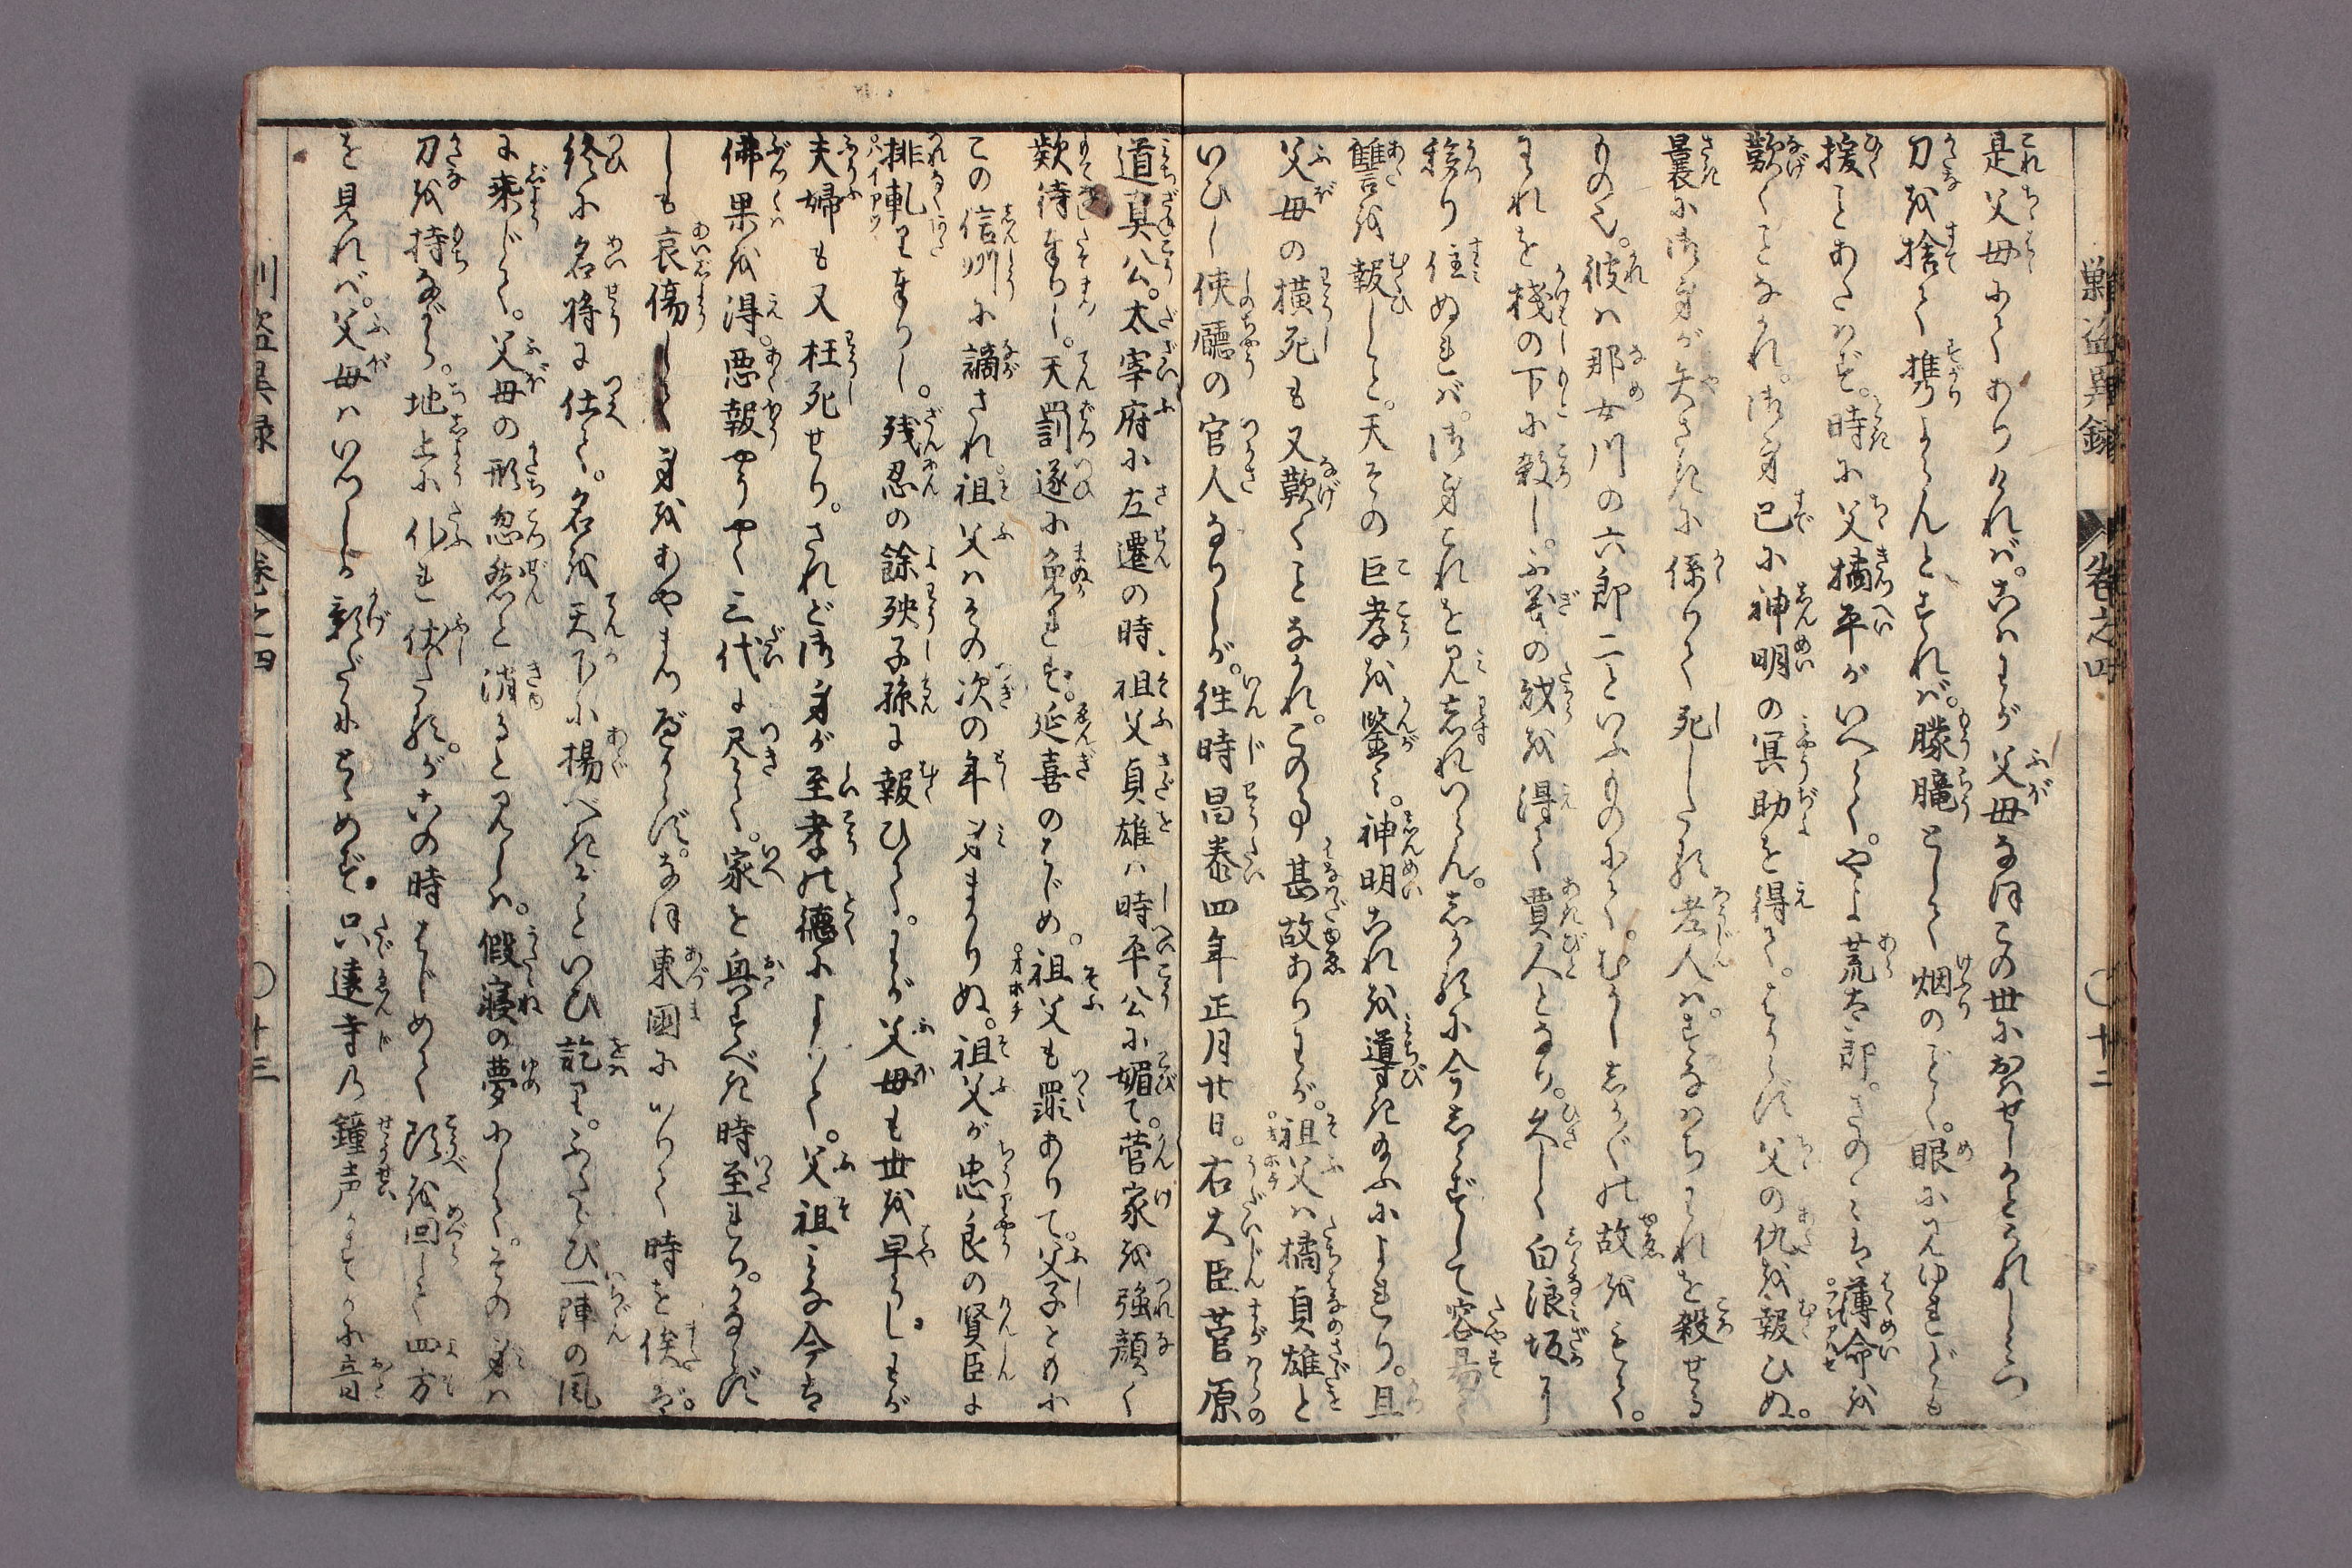 是父母にてありければ。こはわが父母なほこの世におはせしかとうれしさに
刀を捨て携らんとすれば。朦朧として烟のごとく。眼に見ゆれども
援ことあたはず。時に父橘平がいへらく。やよ荒太郎。さのみは薄命を
歎くことなかれ。御身已に神明の冥助を得て。はからず父の仇を報ひぬ。
曩に御身が矢さきに係りて死したる老人は。すなはちわれを殺せる
もの也。彼は那女川の六郎二といふものにて。むかししか〴〵の故をもて。
われを棧の下に殺し。不義の財を得て賈人となり。久しく白浪坂に
移り住ぬれば。御身これを見しれいらん。しかるに今しらずして容易く
讐を報しこと。天その巨孝を鑒み。神明これを導き給ふによれり。且
父母の横死も又歎くことなかれ。この事甚故ありわが。祖父は橘貞雄と
いひし使廳の官人なりしが。往時昌泰四年正月廿日。右大臣菅原
道真公。太宰府に左遷の時、祖父貞雄は時平公に媚て。菅家を強顔く
欵待奉りし。天罰遂に免れず。延喜のはじめ。祖父も罪ありて。父子ともに
この信州に謫され。祖父はその次の年身まかりぬ。祖父が忠良の賢臣を
排軋奉りし。残忍の餘殃子孫に報ひて。わが父母も世を早うし。わが
夫婦も又枉死せり。されど御身が至孝の徳によりて。父祖みな今は
佛果を得。悪報やうやく三代に尽て。家を興すべき時至れり。かならず
しも哀傷して身をあやまつべからず。なほ東國にいりて時を俟ば。
終に名将に仕て。名を天下に揚べきぞといひ訖り。ふたゝび一陣の風
に乗じて。父母の形忽然と消ると見しは。假寝の夢にして。その身は
刀を持ながら。地上に仆れ伏たるが。この時はじめて頭を回して四方
を見れば。父母はいつしか影だにとゞめず。只遠寺の鐘声かすかに音
巣盗異録
巻之四
十二
刪盗異録
巻之四
十三